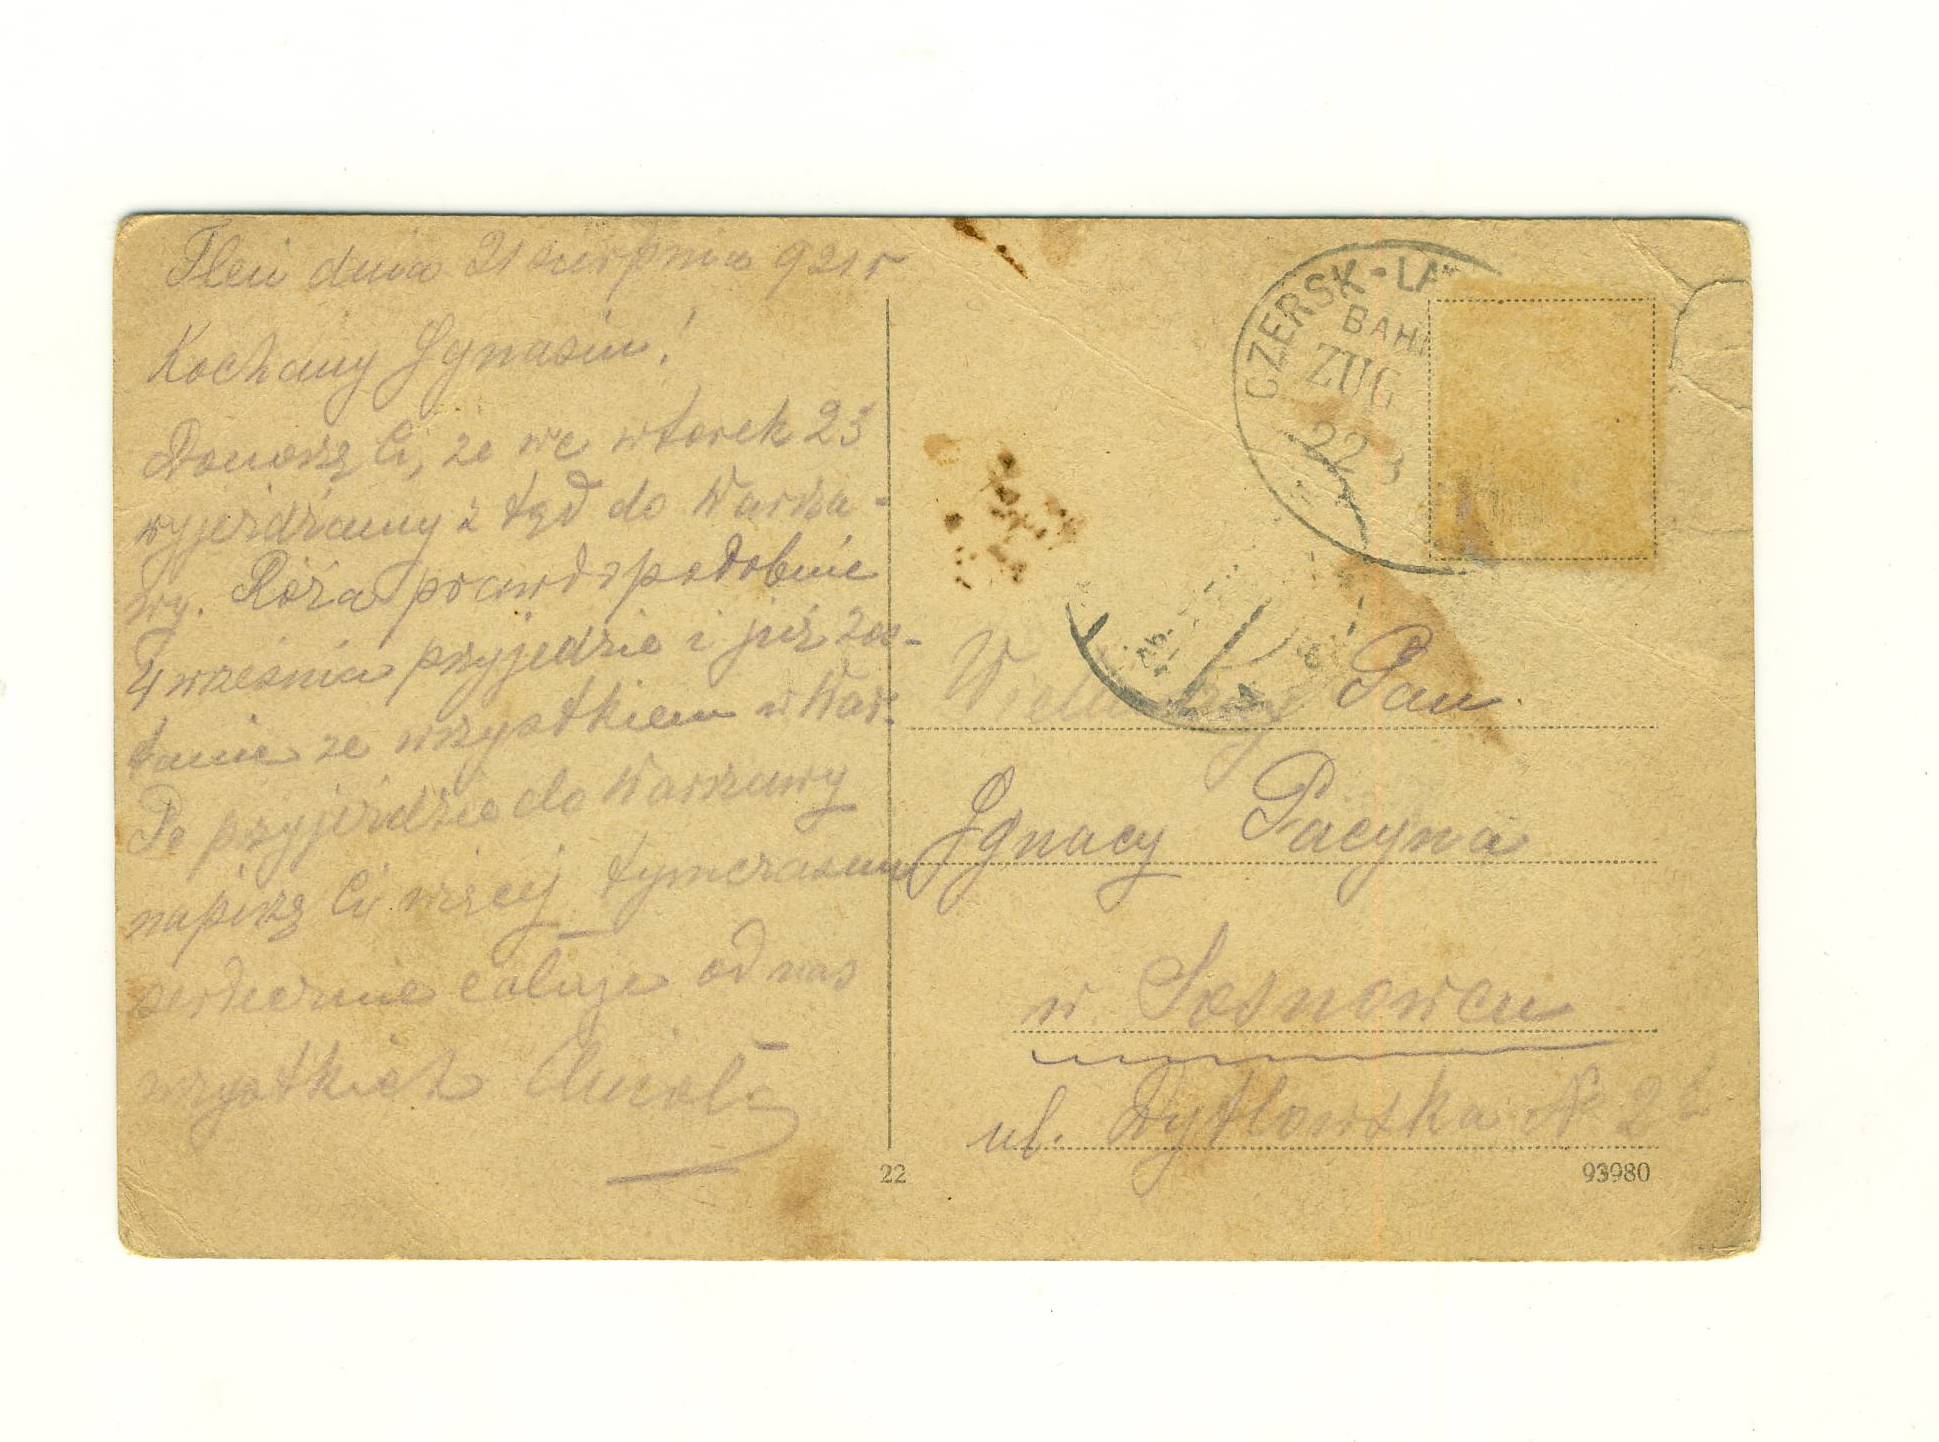 Tleń dnia 21 sierpnia 921 r
Kochany Ignasiu!
Donoszę Ci, że we wtorek 23
wyjeżdżamy z tąd do Warsza-
wy. Róża prawdopodobnie
4 września przyjedzie i już zos-
tanie ze wszystkiem w War.
Po przyjeździe do Warszawy
napiszę Ci więcej tymczasem
serdecznie całuję od nas
wszystkich
CZERSK-LA
BAH
ZUG
22 8
Wielmożny Pan
Ignacy Pacyna
w Sosnowcu
ul. Dytlowska № 2
22
93980